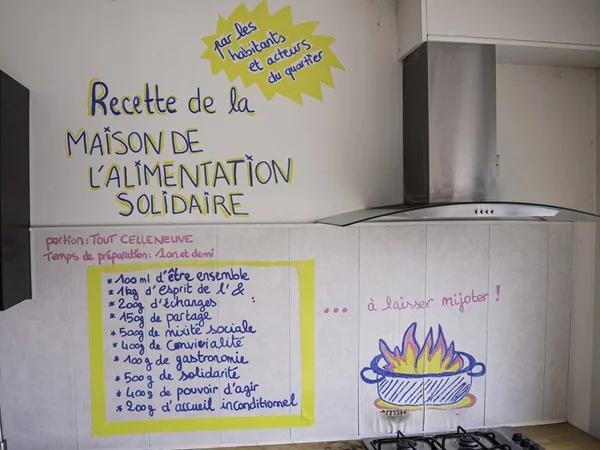 par les
habitants
et acteurs
du quartier
Recette de la
MAISON DE
L'ALIMENTATION
SOLIDAIRE
portion : TOUT CELLENEUVE
Temps de préparation : 1 an et demi
* 100 ml d'être ensemble
* 1 kg d'esprit de l'&
* 200g d'échanges
* 150g de partage
* 500g de mixité sociale
* 400g de convivialité
* 100g de gastronomie
* 500g de solidarité
* 400g de pouvoir d'agir
* 200g d'accueil inconditionnel
... à laisser mijoter !